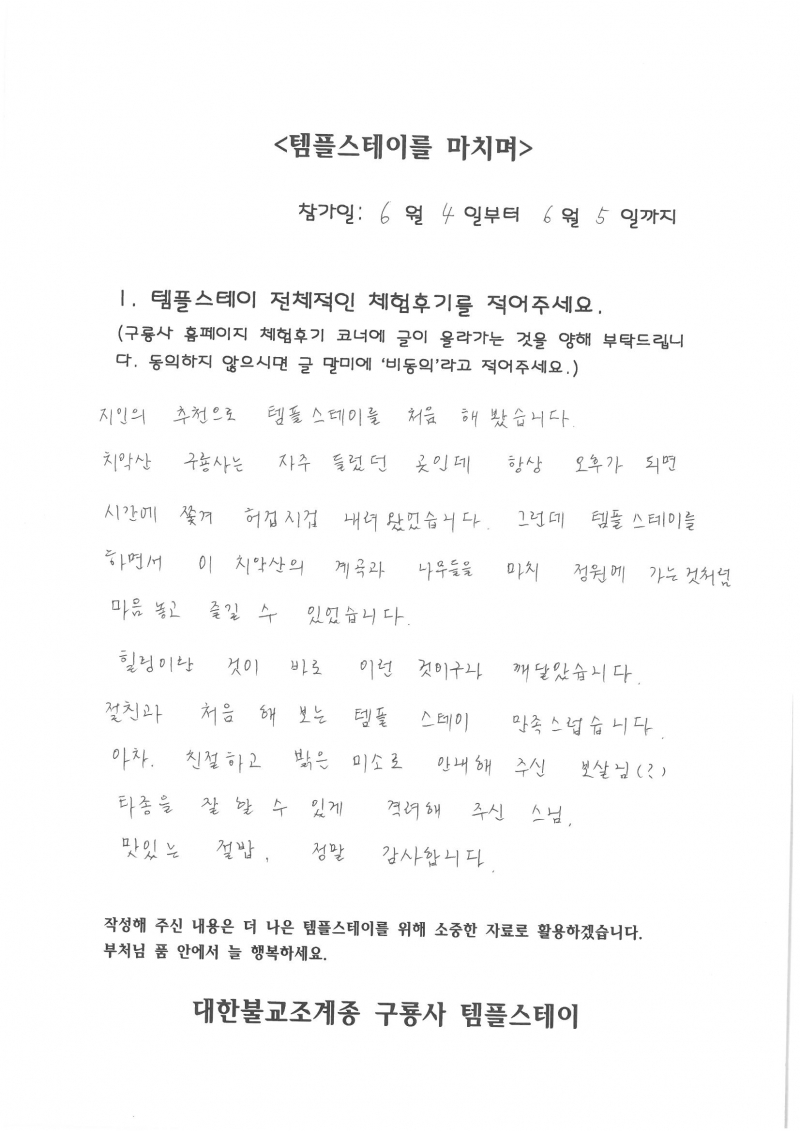 <템플스테이를 마치며>
참가일: 6 월 4 일부터 6 월 5 일까지
1. 템플스테이 전체적인 체험후기를 적어주세요.
(구룡사 홈페이지 체험후기 코너에 글이 올라가는 것을 양해 부탁드립니
다. 동의하지 않으시면 글 말미에 '비동의'라고 적어주세요.)
지인의 추천으로 템플스테이를 처음 해 봤습니다.
치악산 구룡사는 자주 들렀던 곳인데 항상 오후가 되면
시간에 쫓겨 허겁지겁 내려왔었습니다. 그런데 템플스테이를
하면서 이 치악산의 계곡과 나무들을 마치 정원에 가는것처럼
마음 놓고 즐길 수 있었습니다.
힐링이란 것이 바로 이런 것이구나 깨달았습니다.
절친과 처음 해 보는 템플 스테이 만족스럽습니다.
아차. 친절하고 밝은 미소로 안내해 주신 보살님(?)
타종을 잘 할 수 있게 격려해 주신 스님,
맛있는 절밥, 정말 감사합니다.
작성해 주신 내용은 더 나은 템플스테이를 위해 소중한 자료로 활용하겠습니다.
부처님 품 안에서 늘 행복하세요.
대한불교조계종 구룡사 템플스테이